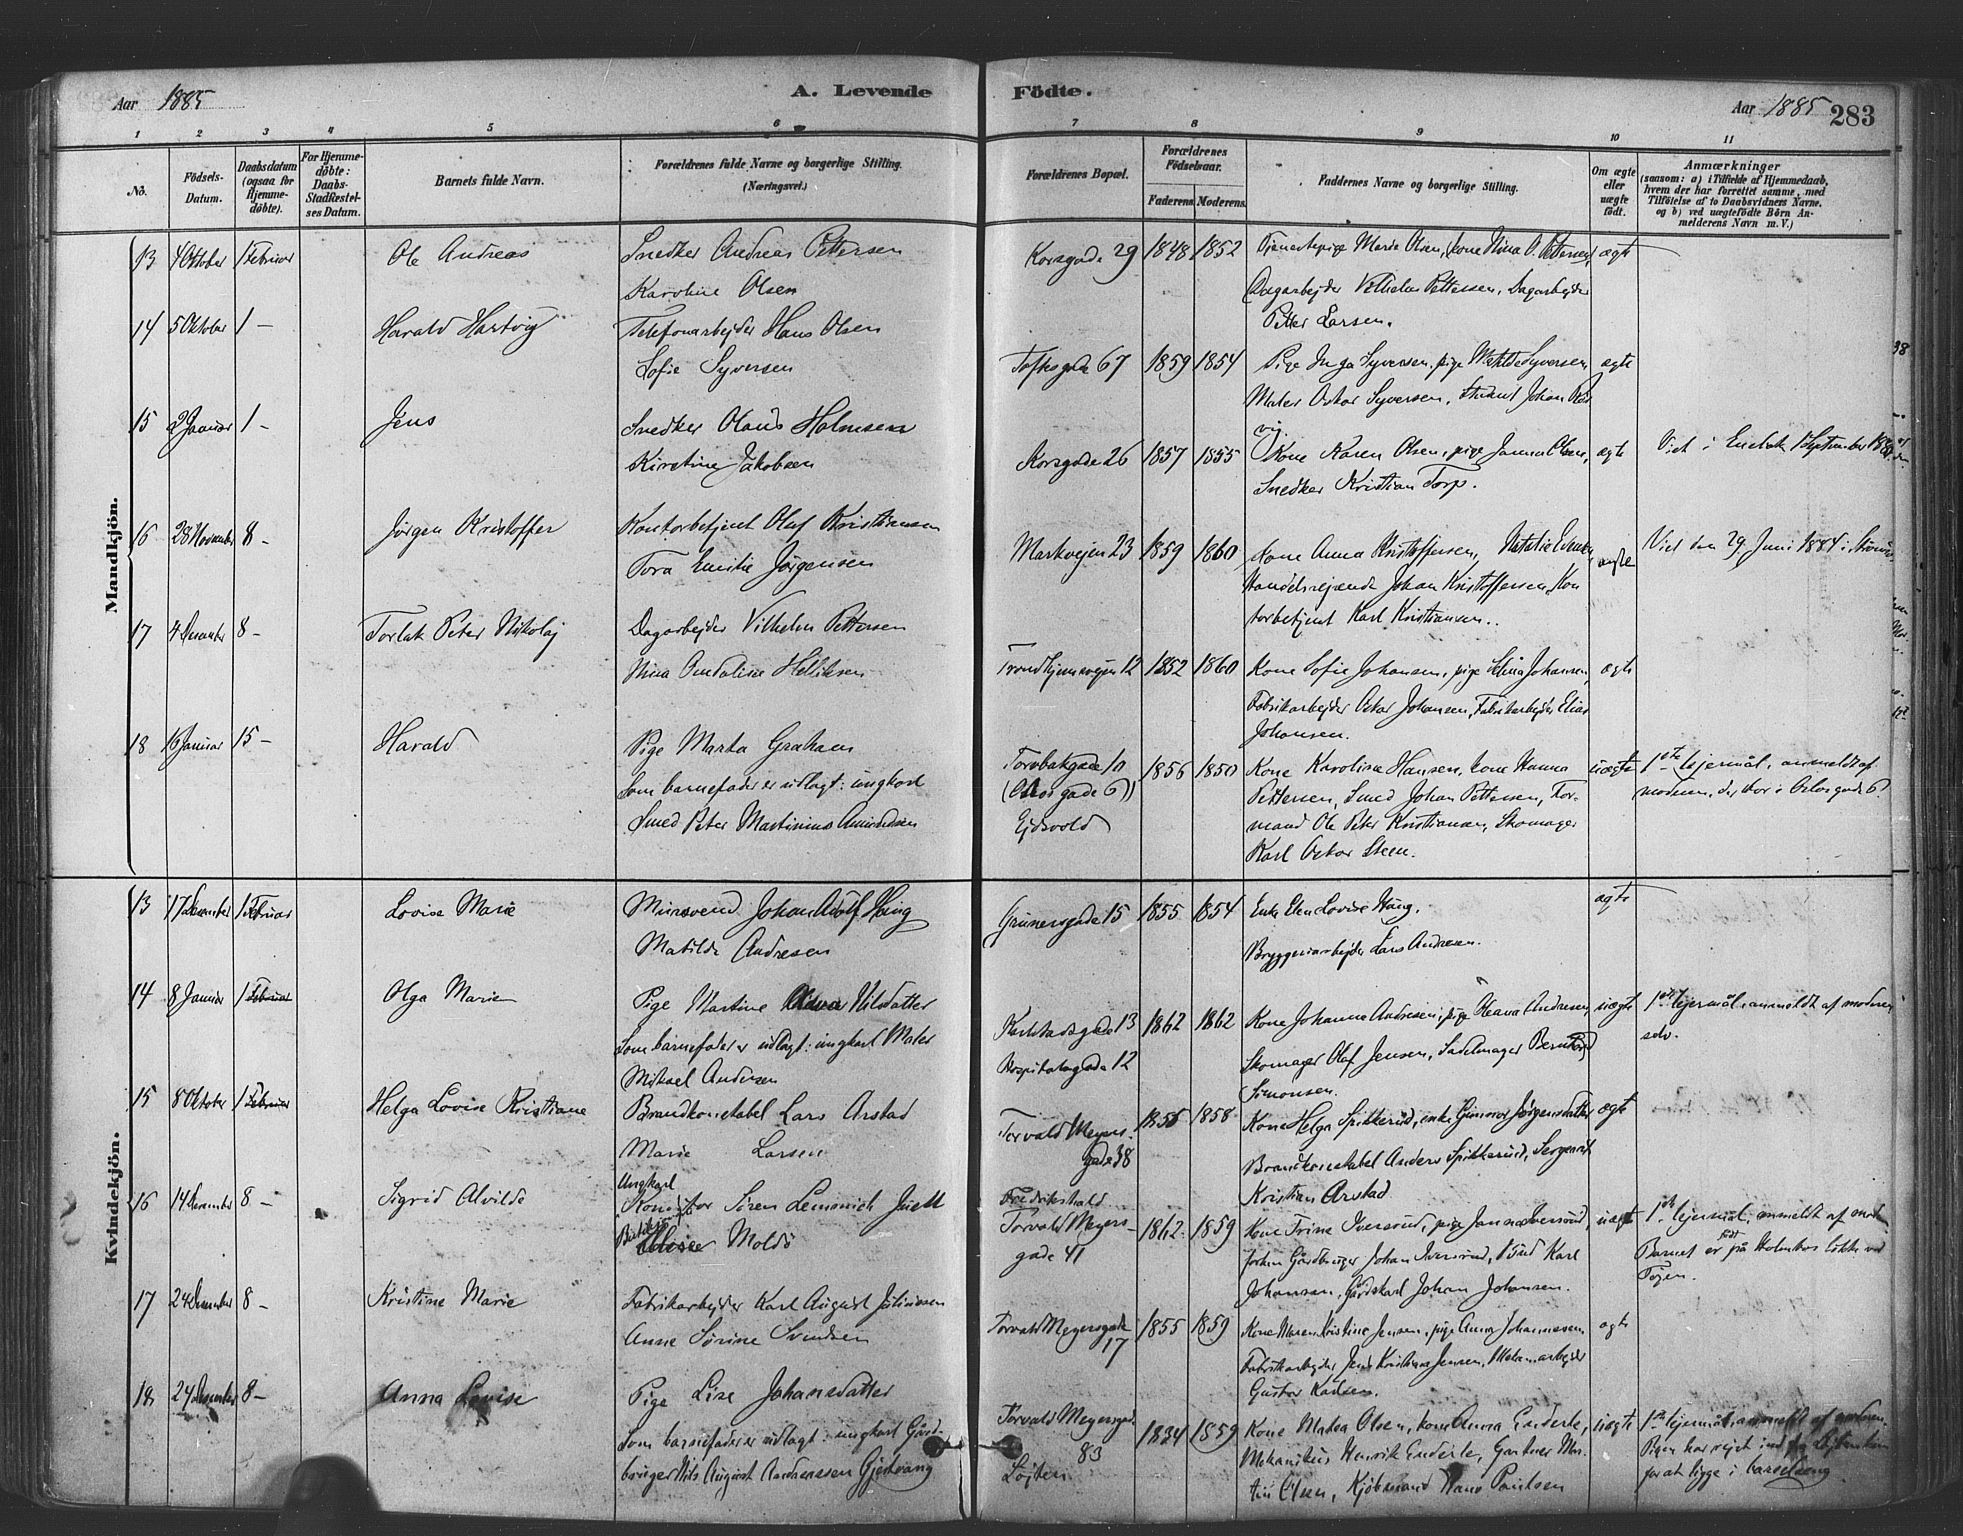 Aar 1885 A. Levende Födte. Aar 1885 283
1 2 3 4 5 6 7 8 9 10 11
No. Födsels-Datum. Daabsdatum (ogsaa för Hjemme-döbte). For Hjemme-döbte: Daabs-Stadfæstel-ses Datum. Barnets fulde Navn. Forældrenes fulde Navne og borgerlige Stilling. (Næringsvei.) Forældrenes Bopæl. Forældrenes Födselsaar. Faderens. Moderens. Faddernes Navne og borgerlige Stilling. Om ægte eller uægte födt. Anmærkninger
(saasom: a) i Tilfælde af Hjemmedaab, hvem der har forrettet samme, med Tilföielse af to Daabsvidners Navne, og b) ved uægtefödte Börn Anmelderens Navn m. V.)
Mandkjön.
13 4 Oktober 1 Februar Ole Andreas Snedker Andreas Pettersen
Karoline Olsen
Korsgade 29 1848 1852 Tjenestepige Marie Olsen, kone Nina O. Pettersen, ægte
Dagarbejder Vilhelm Pettersen, Dagarbejder
Petter Larsen.
14 5 Oktober 1 – Harald Hartvig Telefonarbejder Hans Olsen
Sofie Syversen
Toftesgade 67 1859 1854 Pige Inga Syversen, pige Matilde Syversen, ægte
Maler Oskar Syversen, Student Johan
15 2 Januar 1 – Jens Snedker Olaus Holmsen
Kirstine Jakobsen
Korsgade 26 1857 1855 Kone Karen Olsen, pige Janna Olsen, ægte Viet i Enebak September
Snedker Kristian Torp.
16 28 November 8 – Jørgen Kristoffer Kontorbetjent Olaf Kristiansen
Tora Emilie Jørgensen
Markvejen 23 1859 1860 Kone Anna Kristoffersen, Natalie ægte Viet den 29 Juni 1884 i
Handelsrejsende Johan Kristoffersen, Kon
torbetjent Karl Kristiansen.
17 4 Desember 8 – Torlak Peter Nikolaj Dagarbejder Vilhelm Pettersen
Nina Andaline Helliksen
Trondhjemsvejen 12 1852 1860 Kone Sofie Johansen, pige Johansen, ægte
Fabrikarbejder Oskar Johansen, Fabrikarbejder Elias
Johansen.
18 16 Januar 15 – Harald Pige Marta Graham
Som barnefader er udlagt: ungkarl
Smed Peter Martinius Amundsen
Torvbakgade 10
(Oslogade 6)
Ejdsvold
1856 1850 Kone Karoline Hansen, kone Hanna uægte 1ste lejermål, anmeldt af
Pettersen, Smed Johan Pettersen, For-
moderen, der bor i Oslogade 6.
mand Ole Peter Kristiansen, Skomager
Karl Oskar Steen.
Kvindekjön.
13 17 Desember 1 Februar Lovise Marie Mursvend Johan Adolf Haug
Matilde Andresen
Grunersgade 15 1855 1854 Enke Elen Lovise Haug. ægte
Bryggeriarbejder Lars Andresen.
14 8 Januar 1 Februar Olga Marie Pige Martine Nilsdatter
Som barnefader er udlagt: ungkarl Maler
Mikael Andersen
Karlstadsgade 13
Hospitalsgade 12
1862 1862 Kone Johanna Andresen, pige Andresen, uægte 1ste lejermål, anmeldt af moderen
selv.
Skomager Olaf Jensen, Sadelmager Bernhard
Simonsen.
15 8 Oktober 1 Februar Helga Lovise Kristiane Brandkonstabel Lars Arstad
Marie Larsen
Torvald Meyers-
gade 38
1855 1858 Kone Helga Spikkerud, enke Gunvor Jørgensdatter ægte
Brandkonstabel Anders Spikkerud, Sergeant
Kristian Arstad
16 14 Desember 8 – Sigrid Alvilde Ungkarl
Konditor Sören Lemmich Juell
Moldö
Fredrikshald
Torvald Meyers-
gade 41
1862 1859 Kone Trine Iversrud, pige Janna Iversrud, uægte 1ste lejermål, anmeldt af mod
Gårdbruger Johan Iversrud, Karl
Barnet er født på Holmboes løkke ved
Tøjen.
Johansen, Gårdskarl Johan Johansen.
17 24 Desember 8 – Kristine Marie Fabrikarbejder Karl August Juliussen
Anne Sørine Svendsen
Torvald Meyersgade
17
1855 1859 Kone Maren Kristine Jensen, pige Anna Johannesen ægte
Fabrikarbejder Jens Kristian Jensen, arbejder
Gustav Karlsen.
18 24 Desember 8 – Anna Lovise Pige Lise Johansdatter
Som barnefader er udlagt: ungkarl Gård-
bruger Nils August Andreassen Gjestvang
Torvald Meyersgad.
83
Løjten
1834 1859 Kone Matea Olsen, kone Anna Enderle, uægte 1ste lejermål, anmeldt af moderen.
Mekanikus Henrik Enderle, Gartner Mar-
Pigen har rejst ind fra
tin Olsen, Kjøbmand Hans Paulsen
for at ligge i barselseng